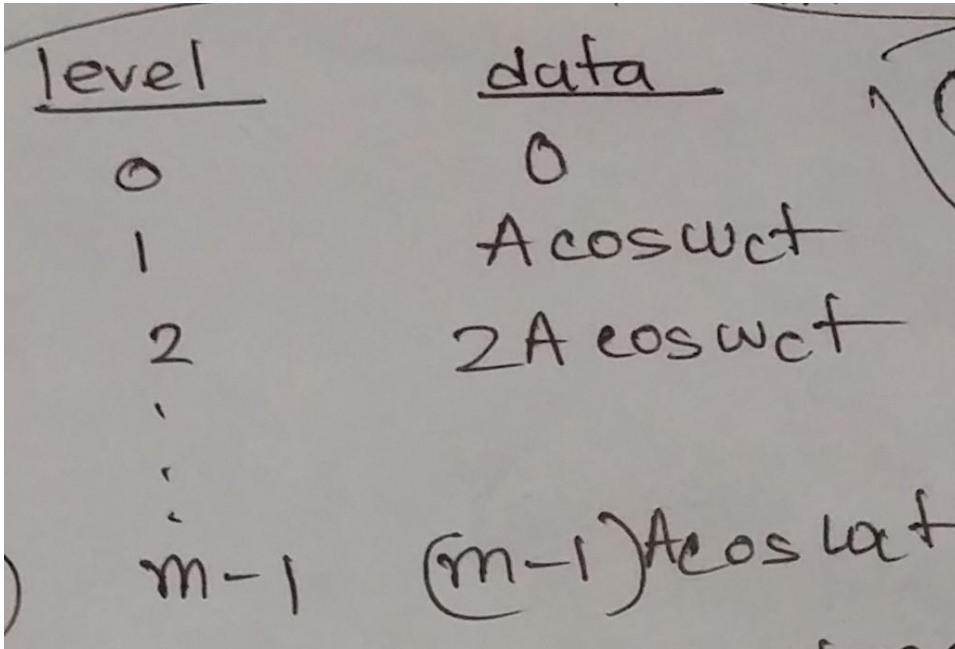 level data
0 0
1 Acoswct
2 2A coswct
.
.
.
m-1 (m-1)Acos wct